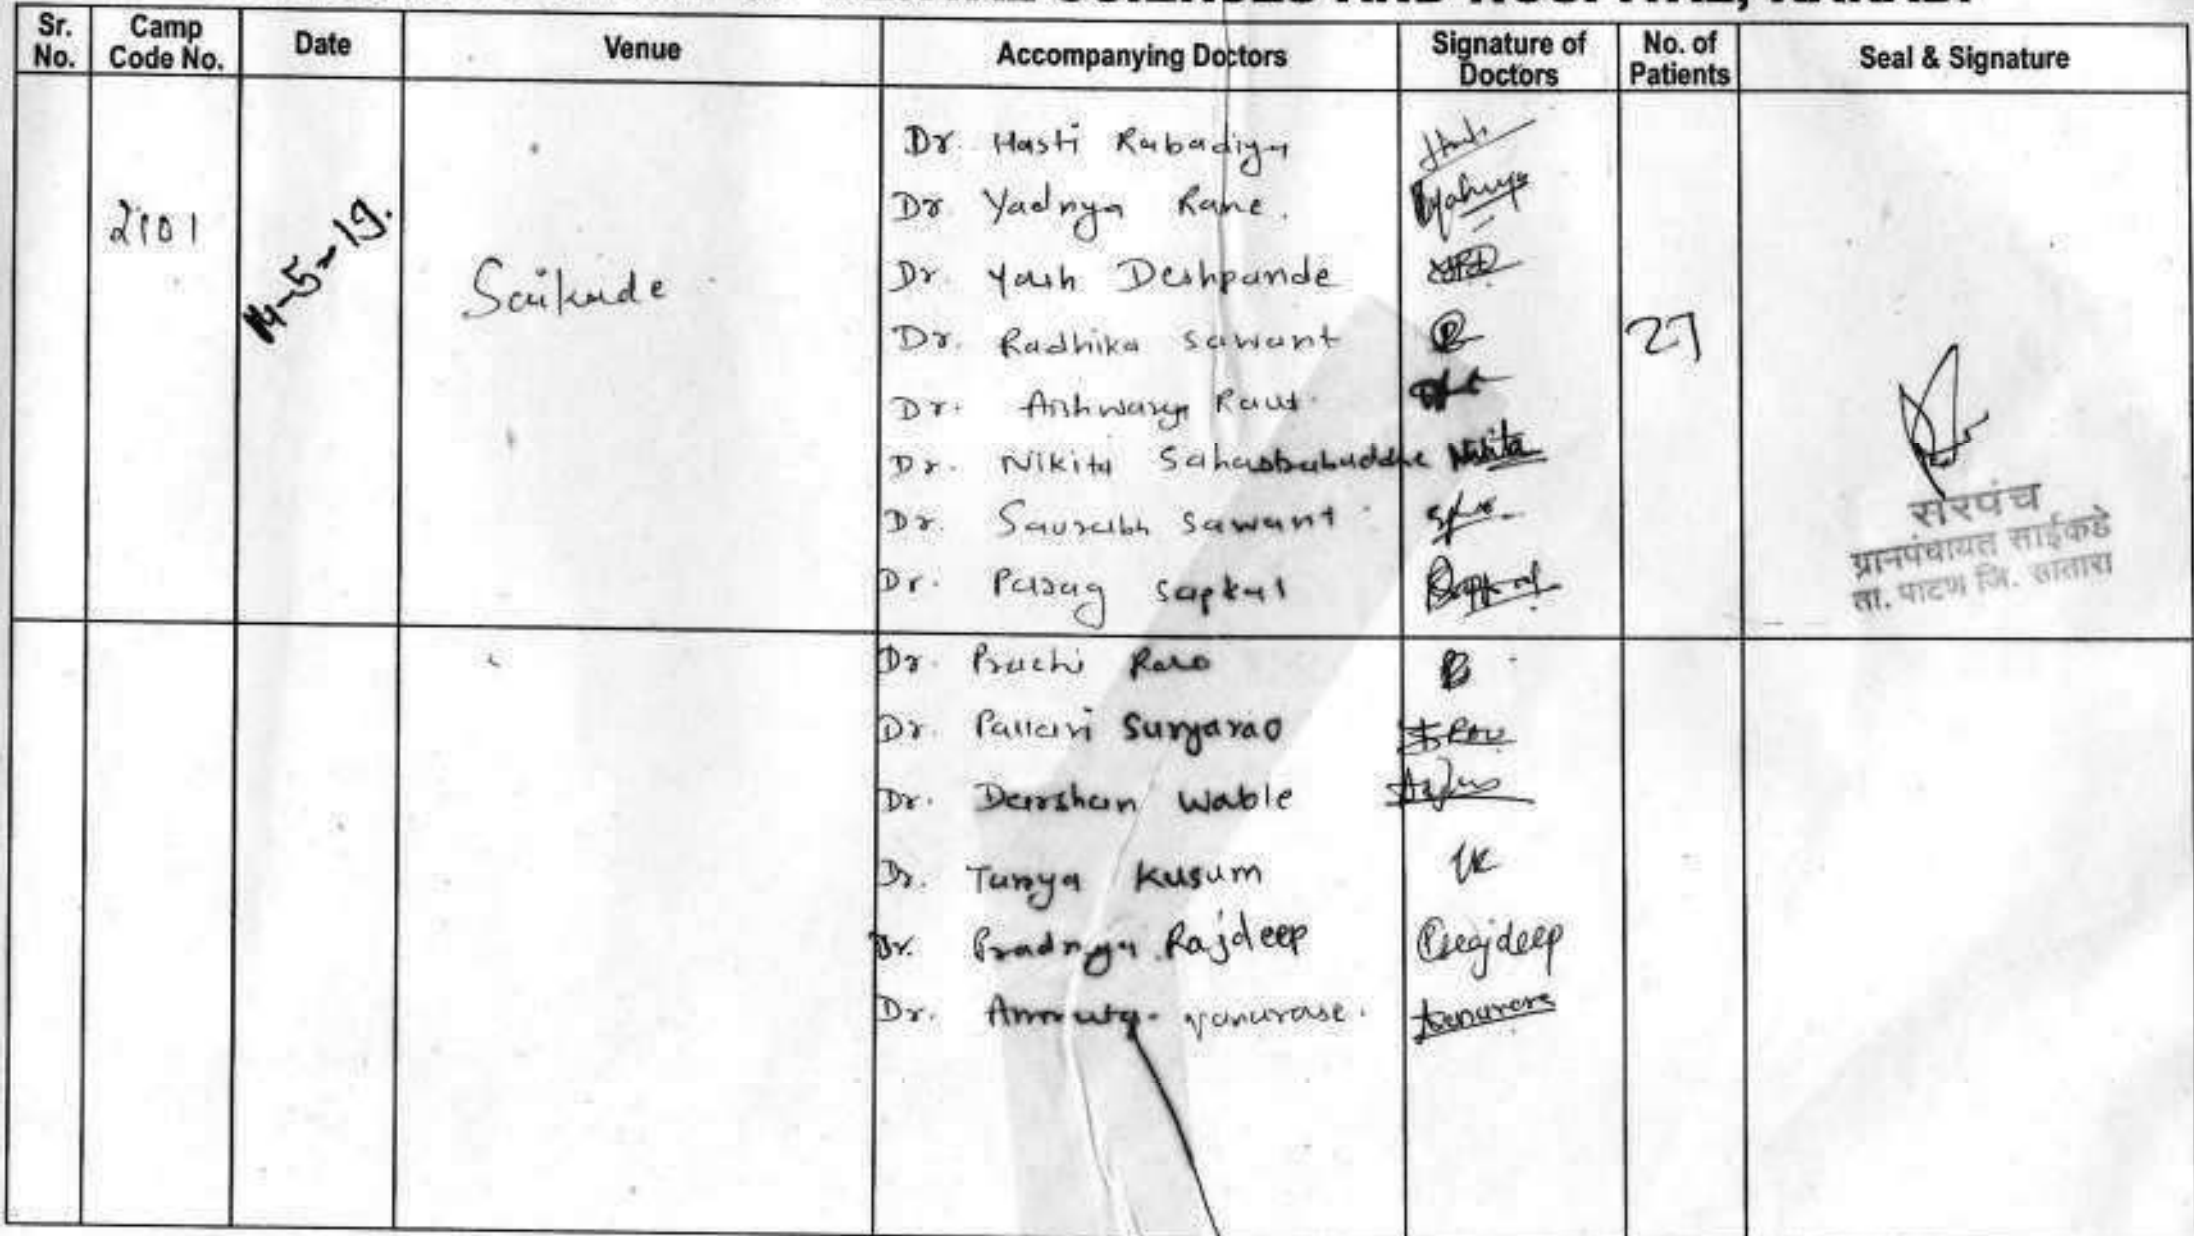 SCIENCES AND HOSPITAL, KARAD.
Sr. No. Camp Code No. Date Venue Accompanying Doctors Signature of Doctors No. of Patients Seal & Signature
2101 14-5-19. Saikade 27
Dr. Hasti Rabadiya
Dr Yadnya Rane.
Dr. Yash Deshpande
Dr. Radhika Sawant
Dr. Aishwarya Raut.
Dr. Nikita Sahasbabuddhe Nikita
Dr. Saurabh Sawant
Dr. Parag Sapkal
सरपंच
ग्रानपंचायत साईकडे
ता. पाटण जि. सातारा
Dr. Prachi
Dr. Pallavi Suryarao
Dr. Darshan Wable
Dr. Tanya Kusum
Dr. Pradnya Rajdeep Rajdeep
Dr. Amruta Vanarase.